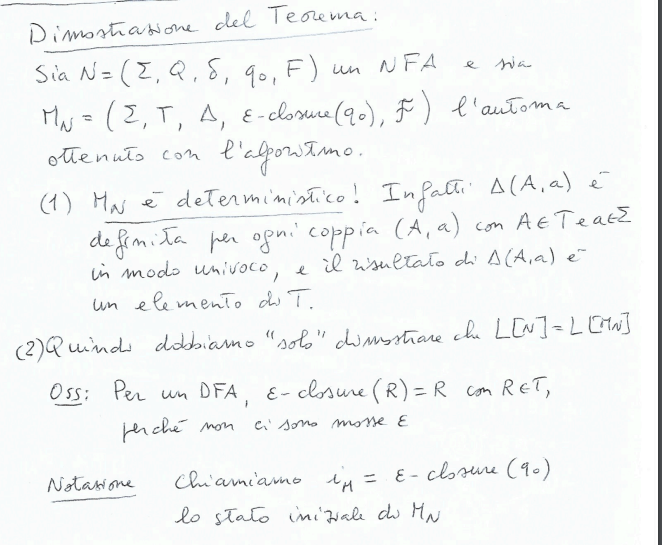 Dimostrazione del Teorema:
Sia N = (Σ, Q, δ, q₀, F) un NFA e sia
M_N = (Σ, T, Δ, ε-closure(q₀), ℱ) l'automa
ottenuto con l'algoritmo.
(1) M_N è deterministico! Infatti Δ(A,a) è
definita per ogni coppia (A,a) con A∈T e a∈Σ
in modo univoco, e il risultato di Δ(A,a) è
un elemento di T.
(2) Quindi dobbiamo "solo" dimostrare che L[N] = L[M_N]
Oss: Per un DFA, ε-closure(R) = R con R∈T,
perché non ci sono mosse ε
Notazione Chiamiamo i_M = ε-closure(q₀)
lo stato iniziale di M_N